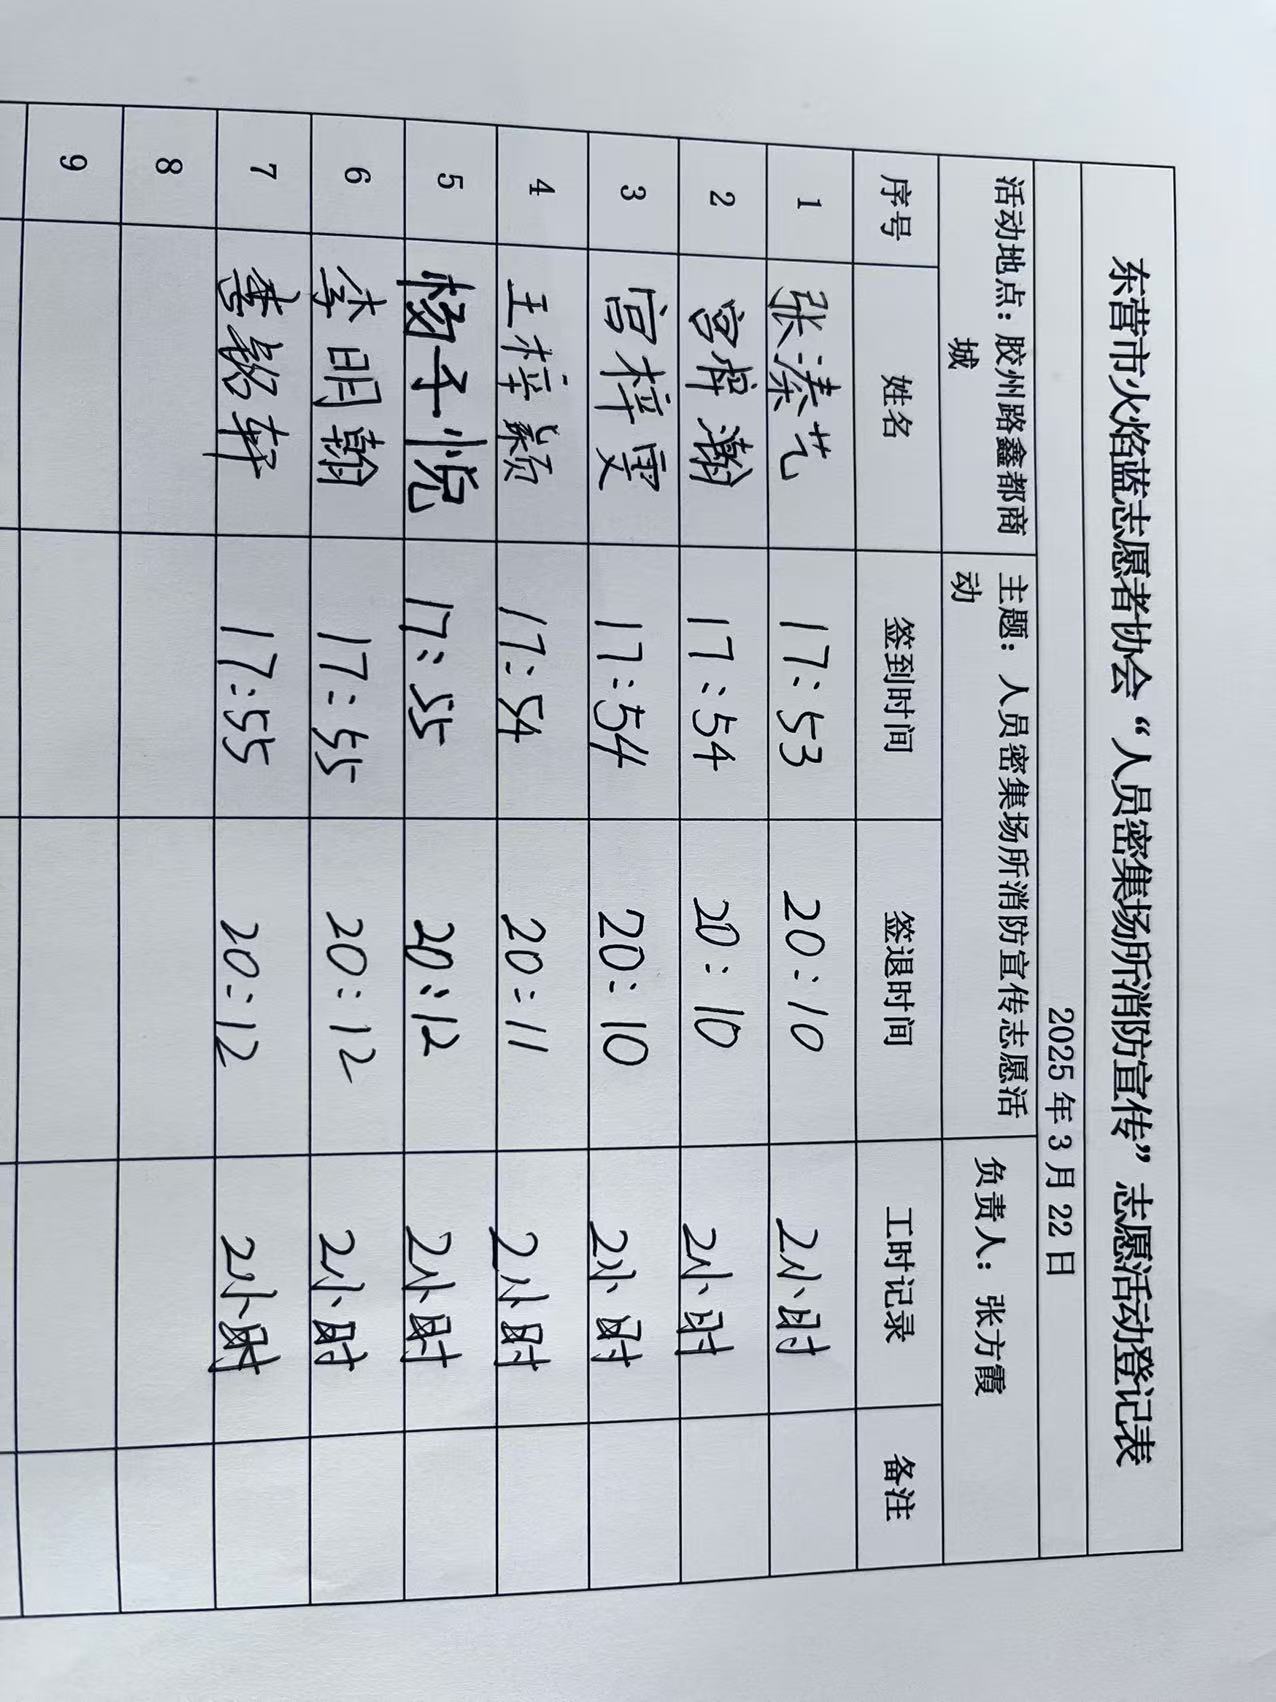 东营市火焰蓝志愿者协会“人员密集场所消防宣传”志愿活动登记表
2025年3月22日
活动地点：胶州路鑫都商城 主题：人员密集场所消防宣传志愿活动 负责人：张方霞
序号 姓名 签到时间 签退时间 工时记录 备注
1 张溱艺 17:53 20:10 2小时
2 宫梓瀚 17:54 20:10 2小时
3 宫梓雯 17:54 20:10 2小时
4 王梓颢 17:54 20:11 2小时
5 杨子悦 17:55 20:12 2小时
6 李明翰 17:55 20:12 2小时
7 黄铭轩 17:55 20:12 2小时
8
9